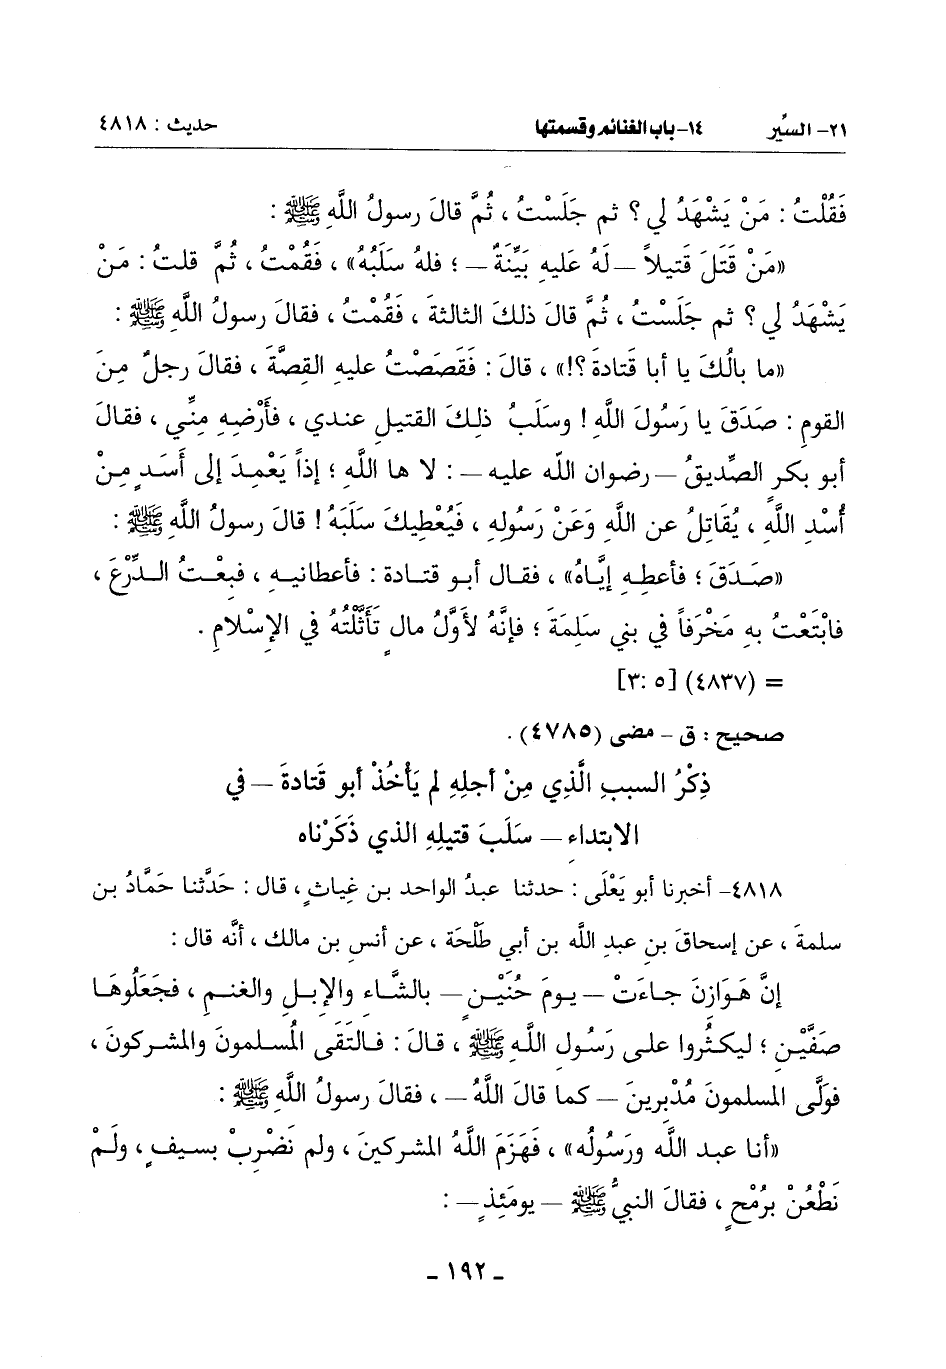 ٢١- السِّير ١٤- باب الغنائم وقسمتها حديث : ٤٨١٨
فَقُلْتُ : مَنْ يَشْهَدُ لي ؟ ثم جَلَسْتُ ، ثُمَّ قالَ رسولُ اللَّهِ ﷺ :
«مَنْ قَتَلَ قَتيلاً —لَهُ عليهِ بَيِّنَةٌ — ؛ فلهُ سَلَبُهُ» ، فَقُمْتُ ، ثُمَّ قلتُ : مَنْ
يَشْهَدُ لي ؟ ثم جَلَسْتُ ، ثُمَّ قالَ ذلكَ الثالثةَ ، فَقُمْتُ ، فقالَ رسولُ اللَّهِ ﷺ :
«ما بالُكَ يا أبا قَتادةَ ؟!» ، قالَ : فَقَصَصْتُ عليهِ القِصَّةَ ، فقالَ رجلٌ مِنَ
القومِ : صَدَقَ يا رَسُولَ اللَّهِ ! وسَلَبُ ذلِكَ القتيلِ عندي ، فأَرْضِهِ مِنِّي ، فقالَ
أبو بكرٍ الصِّديقُ —رضوان الله عليه — : لا ها اللَّهِ ؛ إذاً يَعْمِدَ إلى أَسَدٍ مِنْ
أُسْدِ اللَّهِ ، يُقَاتِلُ عن اللَّهِ وَعَنْ رَسُولِهِ ، فَيُعْطِيكَ سَلَبَهُ ! قالَ رسولُ اللَّهِ ﷺ :
«صَدَقَ ؛ فأعطِهِ إيَّاهُ» ، فقال أبو قتادة : فأعطانيهِ ، فبعْتُ الدِّرْعَ ،
فابْتَعْتُ بهِ مَخْرَفاً في بني سَلِمَةَ ؛ فإنَّهُ لأوَّلُ مالٍ تَأَثَّلْتُهُ في الإسْلامِ .
= (٤٨٣٧) [٥ :٣]
صحيح : ق - مضى (٤٧٨٥) .
ذِكْرُ السببِ الَّذِي مِنْ أجلِهِ لم يَأْخُذْ أبو قَتادةَ —في
الابتداءِ — سَلَبَ قتيلِهِ الذي ذَكَرْناه
٤٨١٨- أخبرنا أبو يَعْلَى : حدثنا عبدُ الواحد بن غِياثٍ ، قال : حَدَّثنا حَمَّادُ بن
سلمةَ ، عن إسحاقَ بنِ عبدِ اللَّه بن أبي طَلْحَة ، عن أنسِ بن مالك ، أنَّه قال :
إنَّ هَوَازِنَ جاءَتْ — يومَ حُنَيْنٍ — بالشَّاء والإبلِ والغنمِ ، فجَعَلُوها
صَفَّيْنِ ؛ ليكثُروا على رَسُولِ اللَّهِ ﷺ ، قالَ : فالتَقَى المُسلمونَ والمشركونَ ،
فولَّى المسلمونَ مُدْبِرينَ — كما قالَ اللَّهُ — ، فقالَ رسولُ اللَّهِ ﷺ :
«أنا عبد الله ورَسُولُه» ، فَهَزَمَ اللَّهُ المشركينَ ، ولم نَضْرِبْ بسيفٍ ، ولَمْ
نَطْعُنْ برُمْحٍ ، فقالَ النبيُّ ﷺ — يومَئِذٍ — :
- ١٩٢ -